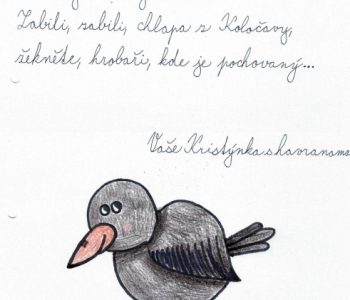 Zabili, zabili, chlapa z Koločavy,
řekněte, hrobaři, kde je pochovaný...
Vaše Kristýnka s havranama